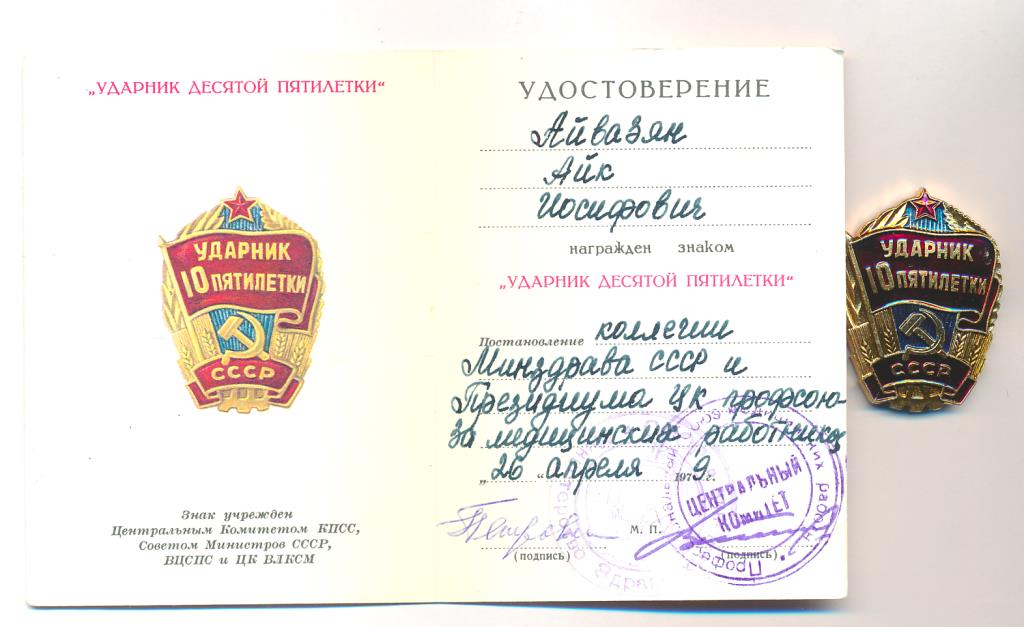 „УДАРНИК ДЕСЯТОЙ ПЯТИЛЕТКИ“
УДАРНИК
10 ПЯТИЛЕТКИ
СССР
Знак учрежден
Центральным Комитетом КПСС,
Советом Министров СССР,
ВЦСПС и ЦК ВЛКСМ
УДОСТОВЕРЕНИЕ
Айвазян
Айк
Иосифович
награжден знаком
„УДАРНИК ДЕСЯТОЙ ПЯТИЛЕТКИ“
Постановление коллегии
Минздрава СССР и
Президиума ЦК профсою-
за медицинских работников
„26“ апреля 1979 г.
М. П.
(подпись)
(подпись)
ЦЕНТРАЛЬНЫЙ
КОМИТЕТ
УДАРНИК
10 ПЯТИЛЕТКИ
СССР